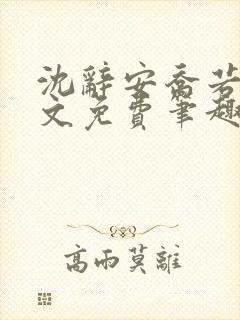 沈辭安喬若
文免費筆趣
高雨莫離